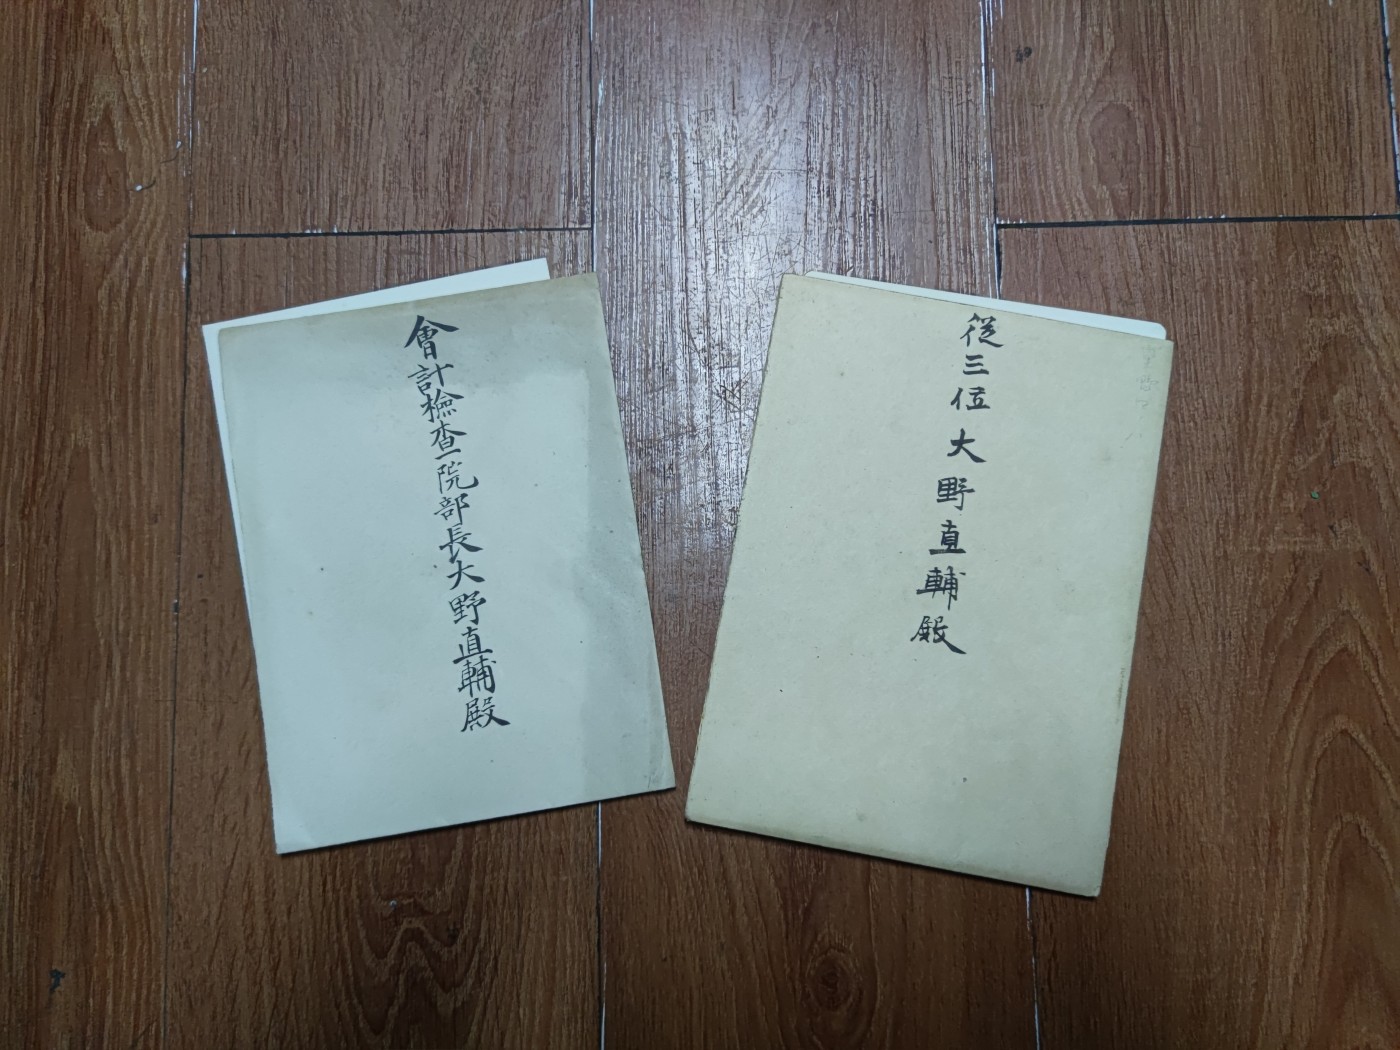 會計檢查院部長大野直輔殿
從三位大野直輔殿